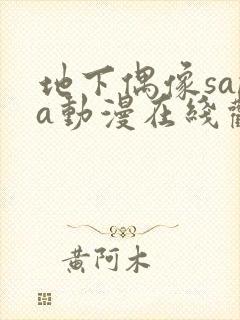 地下偶像sa
a動漫在綫
黄阿木